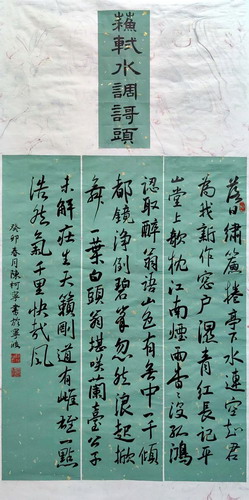 蘓軾水調謌頭
落日繡簾捲亭下水連空知君
為我新作窓户濕青紅長記平
山堂上欹枕江南煙雨杳〻没孤鴻
認取醉翁語山色有無中一千頃
都鏡淨倒碧峯忽然浪起掀
舞一葉白頭翁堪咲蘭臺公子
未解莊生天籟剛道有雌雄一點
浩然氣千里快哉風
癸卯春月陳柯寧書於寧波